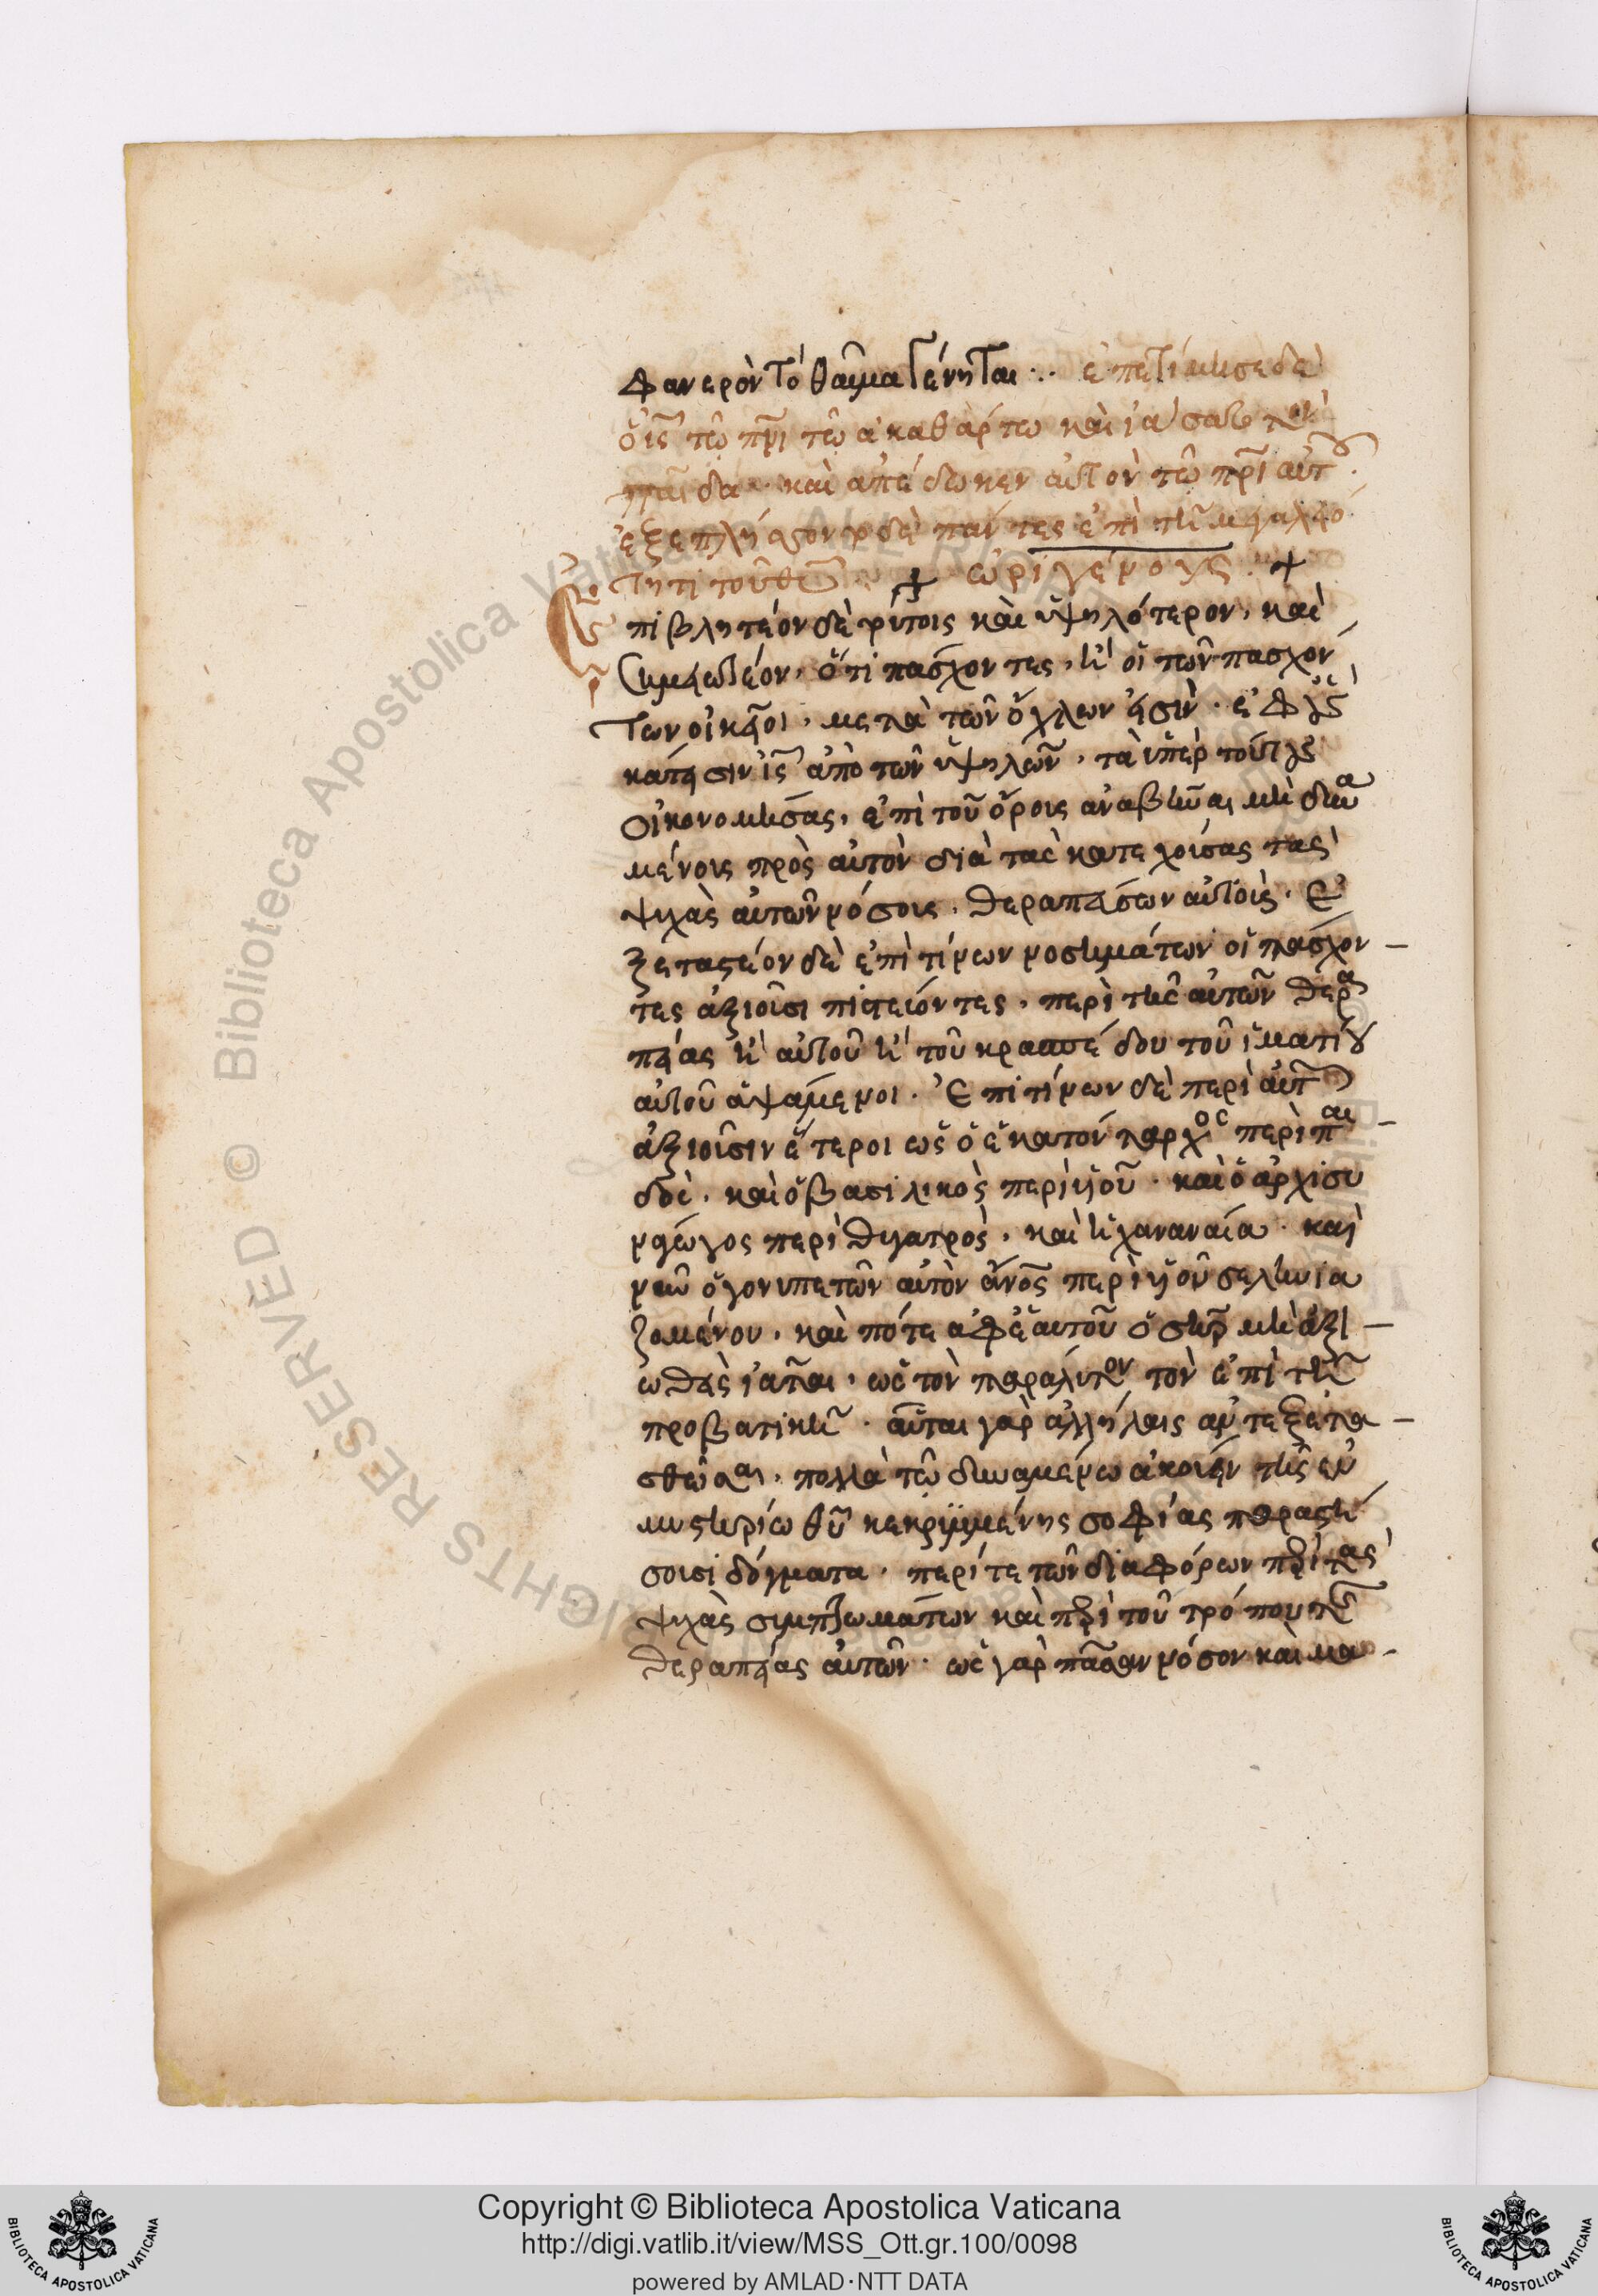 φανερὸν τὸ θαῦμα γένηται·. ἐπετίμησε δὲ
ὁ ι̅ς̅ τῷ π̅ν̅ι τῷ ἀκαθάρτω καὶ ἰάσατο τὸν
παῖδα· καὶ ἀπέδωκεν αὐτὸν τῷ π̅ρ̅ι αὐτ
ἐξεπλήσσοντο δὲ πάντες ἐπὶ τῆ μεγαλειό
τητι τοῦ θ̅υ̅ ὠριγένους
πιβλητέον δὲ τούτοις καὶ ὑψηλότερον, καὶ
σημειωτέον, ὅτι πάσχοντες, ἢ οἱ τῶν πασχόν
των οἰκεῖοι, μετὰ τῶν ὄχλων εἰσὶν·
κάτεισιν ι̅ς̅ ἀπὸ τῶν ὑψηλῶν, τὰ ὑπὲρ τοὺς
οἰκονομήσας, ἐπὶ τοῦ ὄρους ἀναβῆναι μὴ δυνα
μένους πρὸς αὐτὸν διὰ τὰς κατεχούσας τὰς
ψυχὰς αὐτῶν νόσους, θεραπεύσων αὐτοὺς. Ἐ
ξεταστέον δὲ ἐπὶ τίνων νοσημάτων οἱ πάσχον
τες ἀξιοῦσι πιστεύοντες, περὶ τῆς αὐτῶν θερα
πείας ἢ αὐτοῦ ἢ τοῦ κρασπέδου τοῦ ἱματίου
αὐτοῦ ἁψάμενοι. Ἐπὶ τίνων δὲ περὶ αὐτ
ἀξιοῦσιν ἕτεροι ὡς ὁ ἑκατόνταρχος περὶ παι
δὸς, καὶ ὁ βασιλικὸς περὶ υἱοῦ· καὶ ὁ ἀρχισυ
ναγωγος περὶ θυγατρὸς, καὶ ἡ χαναναία· καὶ
νῦν ὁ γονυπετῶν αὐτὸν ἄνος περὶ υἱοῦ σεληνια
ζομένου, καὶ πότε ἀφ' ἑαυτοῦ ὁ σ̅η̅ρ̅ μὴ ἀξι
ωθεὶς ἰᾶται, ὡς τὸν παράλυτον τὸν ἐπὶ τῆ
προβατικῆ· αὗται γὰρ ἀλλήλαις ἀντεξετα
σθεῖσαι, πολλὰ τῷ δυναμένω ἀκούειν τῆς ἐν
μυστηρίω θ̅υ̅ κεκρυμμένης σοφίας παραστή
σουσι δόγματα, περί τε τῶν διαφόρων περὶ τὰς
ψυχὰς συμπτωμάτων καὶ περὶ τοῦ τρόπου τῆς
θεραπείας αὐτῶν· ὡς γὰρ πᾶσαν νόσον καὶ μα
Copyright © Biblioteca Apostolica Vaticana
http://digi.vatlib.it/view/MSS_Ott.gr.100/0098
powered by AMLAD·NTT DATA